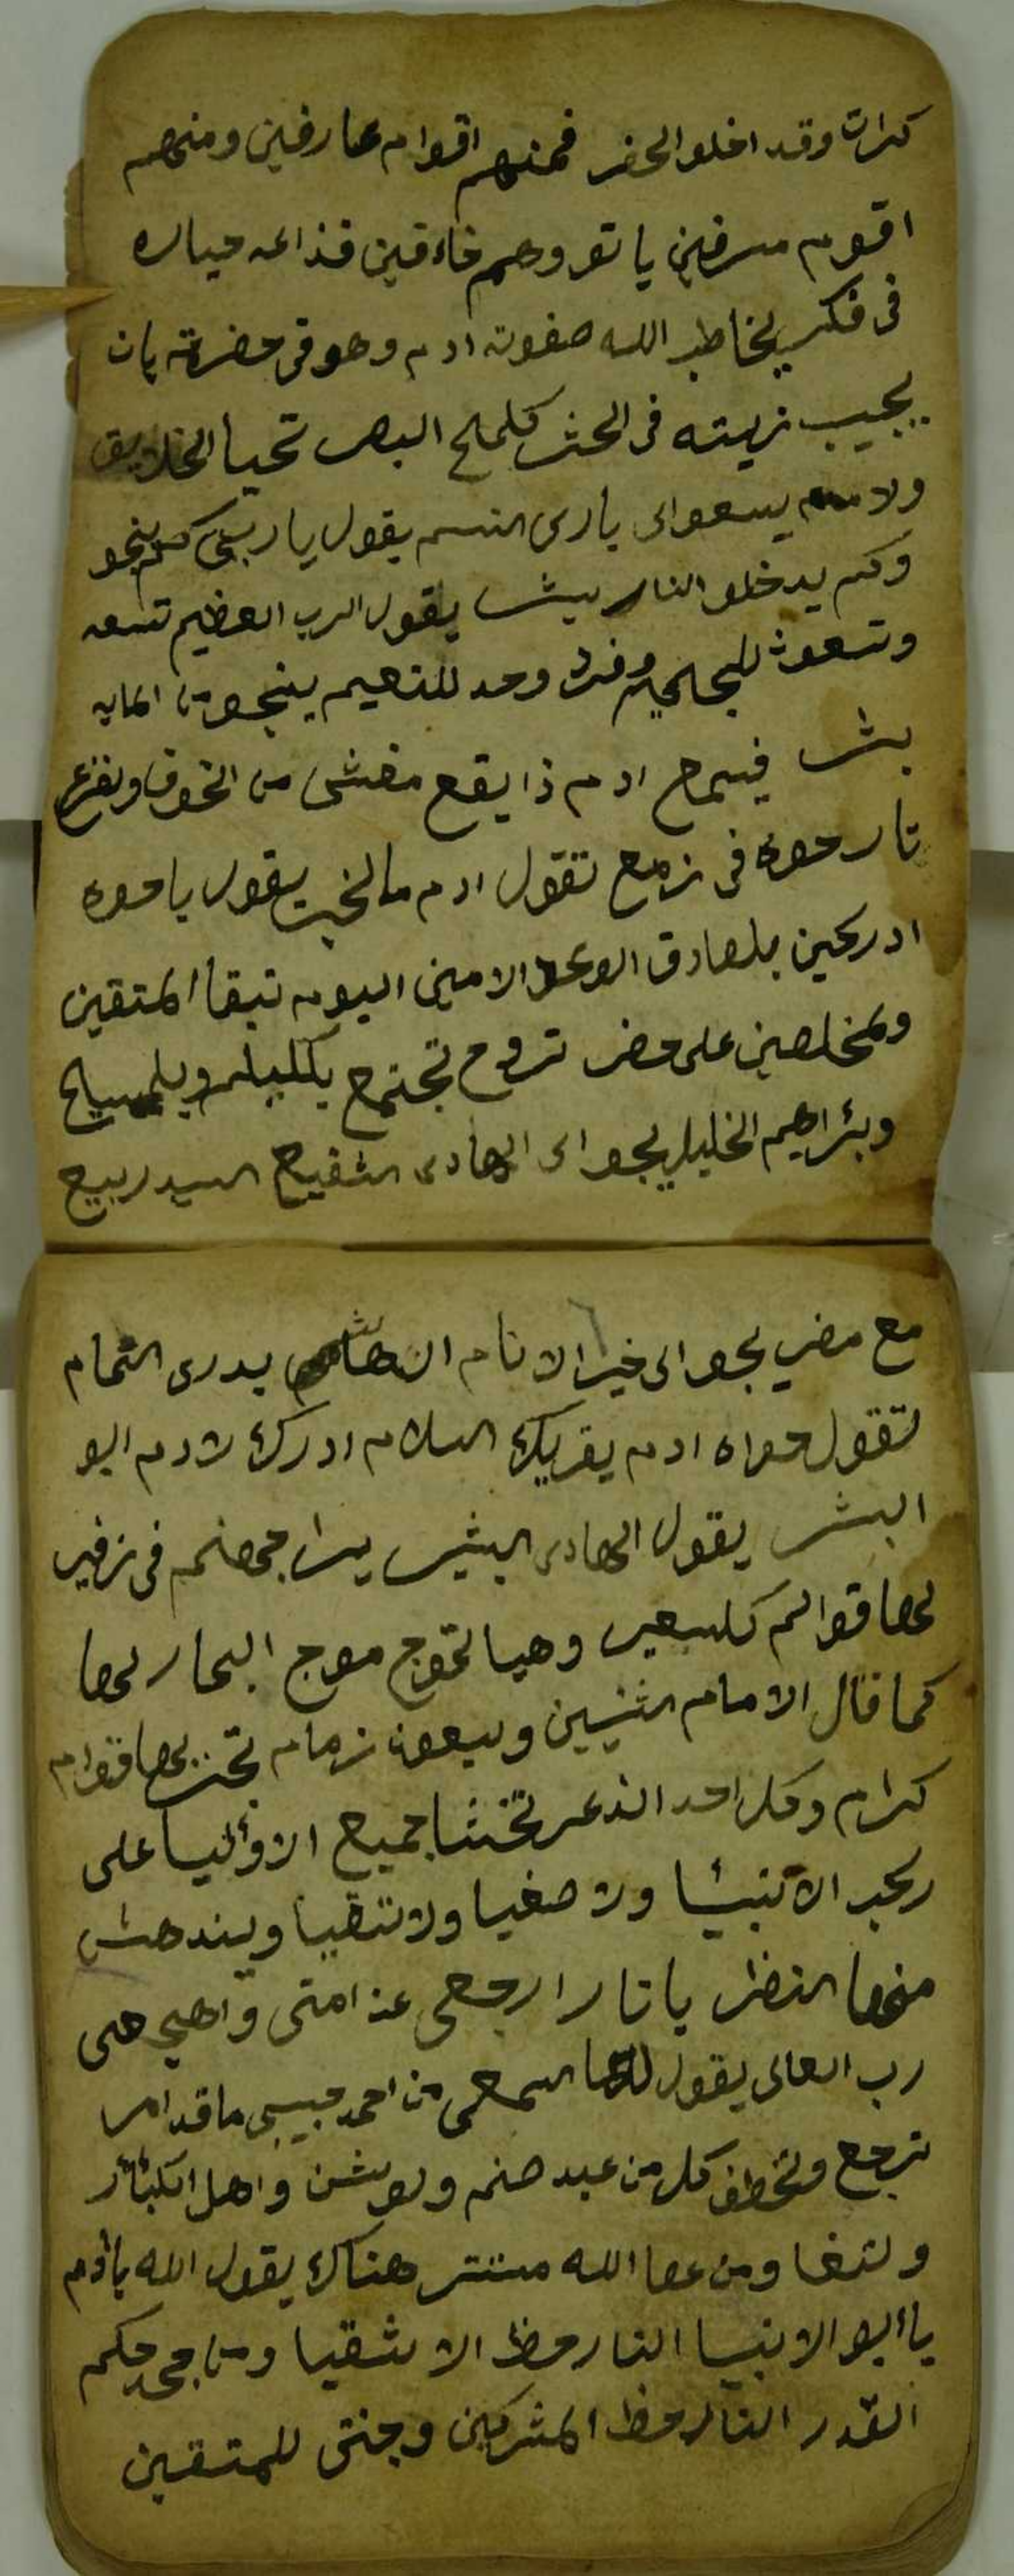 كرات وقد اخلو الحفر فمنهم اقوام عارفين ومنهم
اقوم مسرفين ياتو وهم خاءفين فذا
فى فكر يخاطب الله صفوته ادم وهو فى حضرته بان
يجيب زيته فى الحشر كلمح البصر تحيا الخلايق
ولامم يسعوا الى بارى النسم يقول يا ربى كم ينجو
وكم يدخلو النار يقول الرب العظيم تسعه
وتسعون للجحيم وفرد وحد للنعيم ينجو من المايه
بشر فيسمع ادم ذا يقع مغشى من الخوف ونفزع
تا حوه فى زمع تقول ادم ما لخبر يقول يا حوه
ادركين بلصادق الوعد الامين اليوم تبقا المتقين
ولمخلصين على حضر تروح تجتمع بكلكليم وبلمسيح
وبئراهيم الخليل يجو الى الهادى الشفيع السيد ربيع
مع مضر يجو الى خير الانام الهاشمى بدرى التمام
تقول حواه ادم يقريك السلام ادرك لادم ابو
البشر يقول الهادى البشير يرا جهنم فى زفير
لها قوالم كلسعير وهيا تموج موج البحار لها
كما قال الامام اثنين وسبعون زمام تحت لها قوام
كرام وكل احد الذعر تخشا جميع الاوليا على
ركب الانبيا ولا صفيا ولا تقيا ويندهش
منها النظر يا نار ارجعى عن امتى واهجى
رب العالى يقول لها اسمعى من احمد حبيبى ما قد امر
ترجع وتخطف كل من عبد صنم ولوشن واهل الكبائر
ومن عصا الله هناك يقول الله يادم
يا ابو الانبيا النار حظ الاشقيا ومن جحد حكم
القدر النار حظ المشركين وجنتى للمتقين